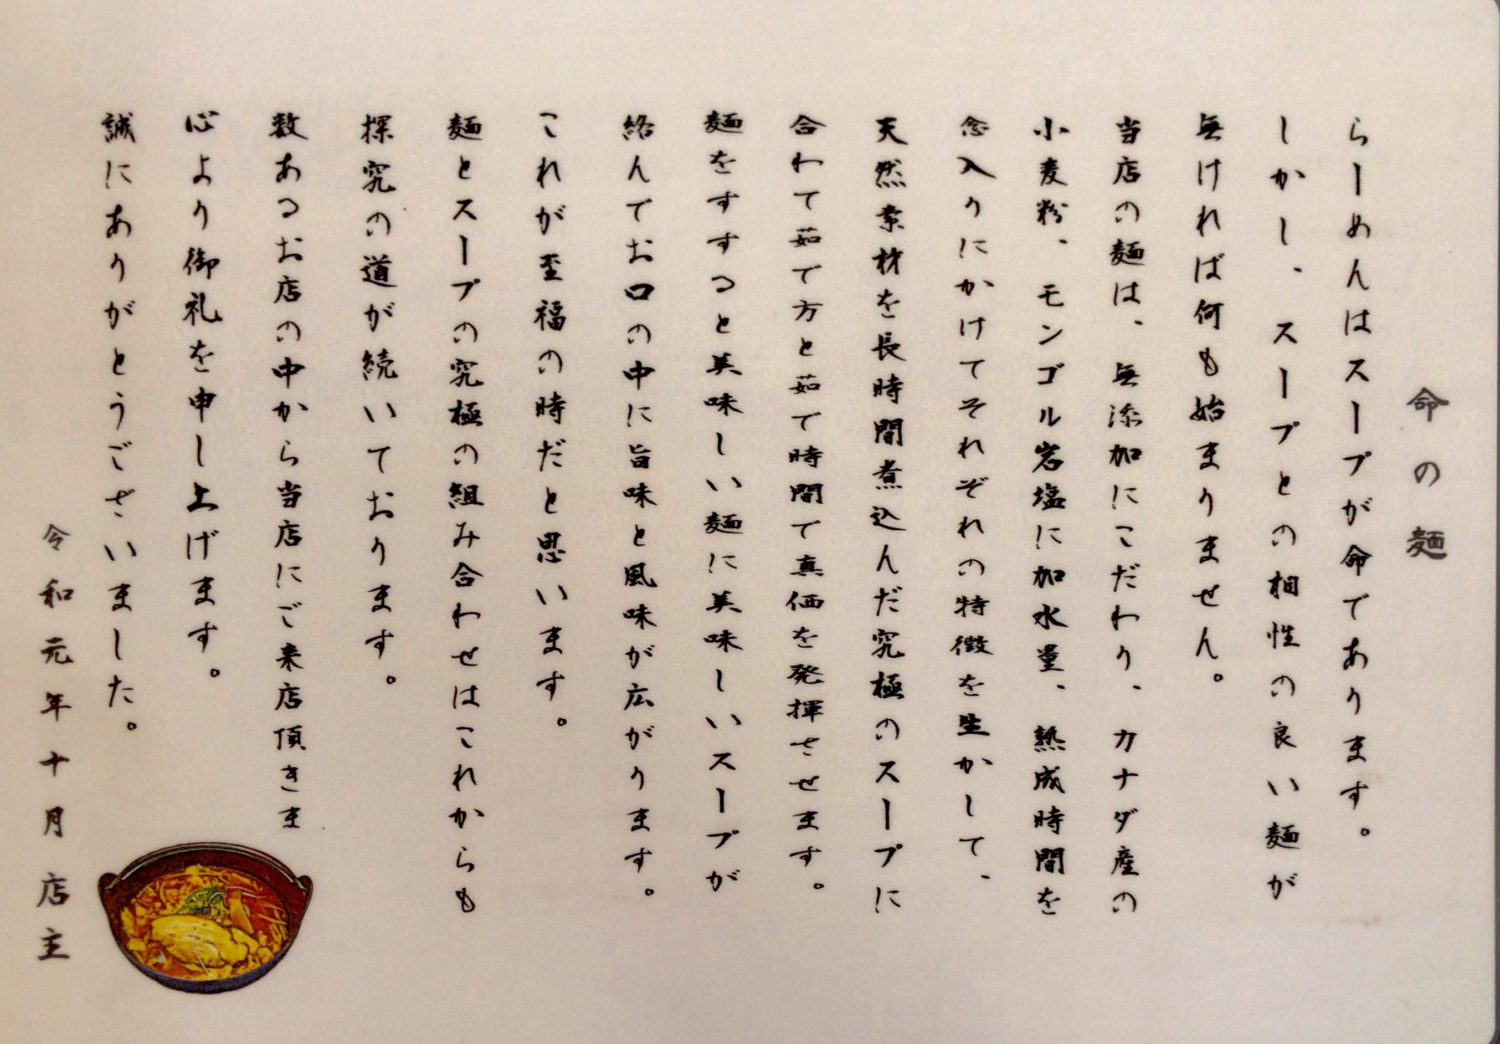 命の麺
らーめんはスープが命であります。
しかし、スープとの相性の良い麺が
無ければ何も始まりません。
当店の麺は、無添加にこだわり、カナダ産の
小麦粉、モンゴル岩塩に加水量、熟成時間を
念入りにかけてそれぞれの特徴を生かして、
天然素材を長時間煮込んだ究極のスープに
合わて茹で方と茹で時間で真価を発揮させます。
麺をすすると美味しい麺に美味しいスープが
絡んでお口の中に旨味と風味が広がります。
これが至福の時だと思います。
麺とスープの究極の組み合わせはこれからも
探究の道が続いております。
数あるお店の中から当店にご来店頂きま
心より御礼を申し上げます。
誠にありがとうございました。
令和元年十月 店主